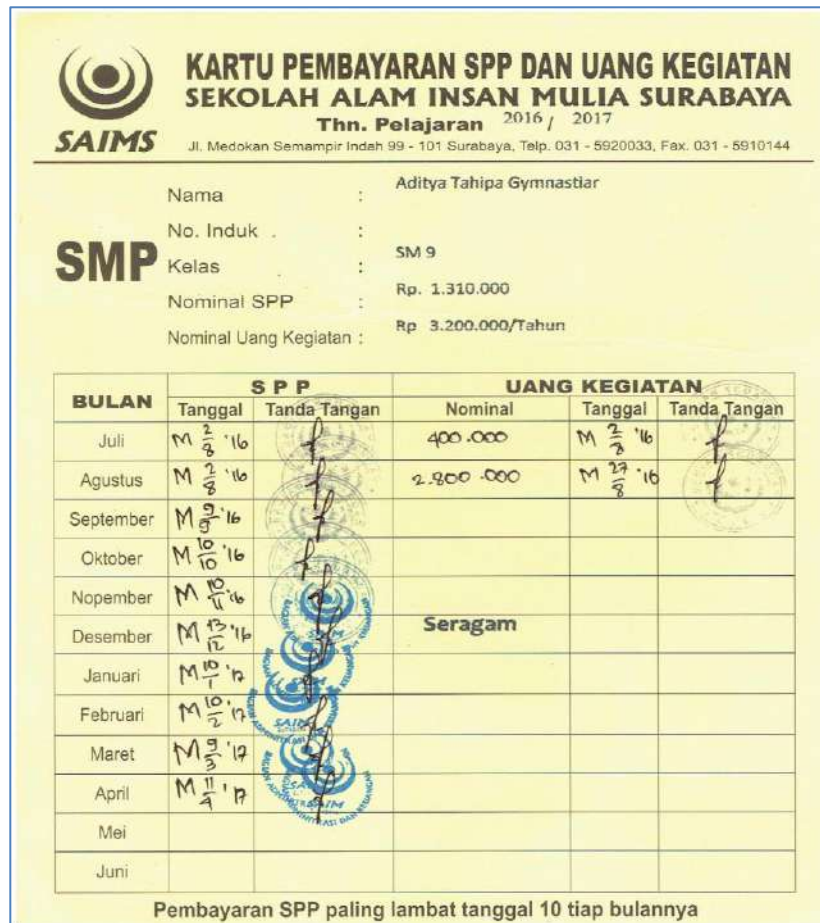 KARTU PEMBAYARAN SPP DAN UANG KEGIATAN
SEKOLAH ALAM INSAN MULIA SURABAYA
SAIMS
Thn. Pelajaran 2016 / 2017
Jl. Medokan Semampir Indah 99 - 101 Surabaya, Telp. 031 - 5920033, Fax. 031 - 5910144
SMP
Nama : Aditya Tahipa Gymnastiar
No. Induk :
Kelas : SM 9
Nominal SPP : Rp. 1.310.000
Nominal Uang Kegiatan : Rp 3.200.000/Tahun
BULAN SPP UANG KEGIATAN
Tanggal Tanda Tangan Nominal Tanggal Tanda Tangan
Juli M 2/8 '16 400.000 M 2/8 '16
Agustus M 2/8 '16 2.800.000 M 27/8 '16
September M 9/9 '16
Oktober M 10/10 '16
Nopember M 10/11 '16
Desember M 13/12 '16 Seragam
Januari M 10/1 '17
Februari M 10/2 '17
Maret M 9/3 '17
April M 11/4 '17
Mei
Juni
Pembayaran SPP paling lambat tanggal 10 tiap bulannya